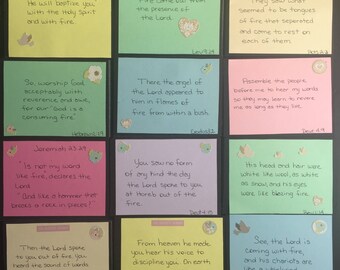 He will baptize you
with the Holy Spirit
and with fire.
the presence of
the Lord.
They saw what
seemed to be tongues
of fire that separated
and came to rest on
each of them.
So, worship God
acceptably with
reverence and awe,
for our "God is a
consuming fire"
Hebrews
There the angel of
the Lord appeared to
him in flames of
fire from within a bush.
Assemble the people
before me to hear my words
so they may learn to revere
me as long as they live.
Jeremiah 23:29
"Is not my word
like fire, declares the
Lord
"And like a hammer that
breaks a rock in pieces!"
You saw no form
of any kind the day
the Lord spoke to you
at Horeb out of the
fire.
His head and hair were
white like wool, as white
as snow, and his eyes
were like blazing fire.
Then the Lord spoke
to you out of fire. You
heard the sound of words
From heaven he made
you hear his voice to
discipline you. On earth
See, the Lord is
coming with fire,
and his chariots are
like a whirlwind